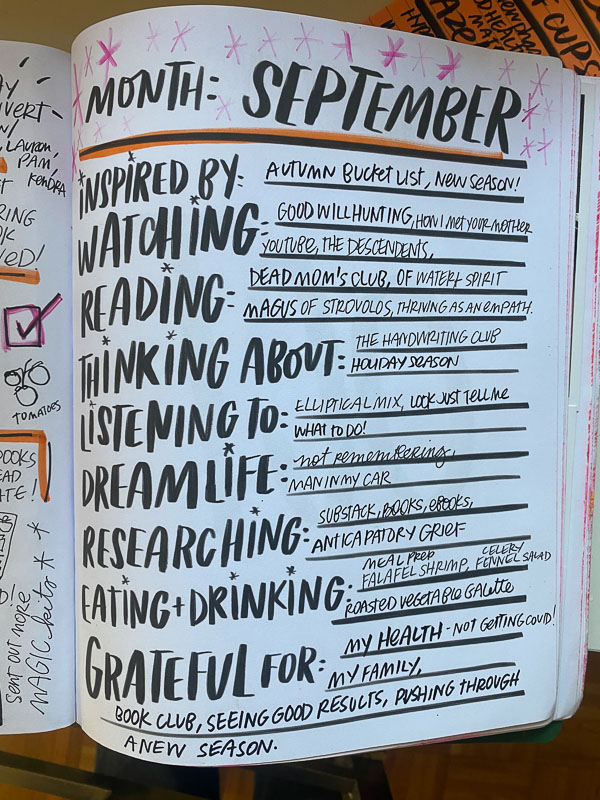 MONTH: SEPTEMBER
INSPIRED BY: AUTUMN BUCKET LIST, NEW SEASON!
WATCHING: GOOD WILL HUNTING, HOW I MET YOUR MOTHER
YOUTUBE, THE DESCENDENTS,
READING: DEAD MOM'S CLUB, OF WATER & SPIRIT
MAGUS OF STROVOLOS, THRIVING AS AN EMPATH.
THINKING ABOUT: THE HANDWRITING CLUB
HOLIDAY SEASON
LISTENING TO: ELLIPTICAL MIX, LOOK JUST TELL ME
WHAT TO DO!
DREAM LIFE: not remembering,
MAN IN MY CAR
RESEARCHING: SUBSTACK, BOOKS, EBOOKS,
ANTICAPATORY GRIEF
EATING + DRINKING: MEAL PREP
FALAFEL SHRIMP, CELERY FENNEL SALAD
ROASTED VEGETABLE GALETTE
GRATEFUL FOR: MY HEALTH - NOT GETTING COVID!
MY FAMILY,
BOOK CLUB, SEEING GOOD RESULTS, PUSHING THROUGH
A NEW SEASON.
LAUREN,
PAM,
KENDRA
TOMATOES
sent out more
MAGIC kits
OF CUPS